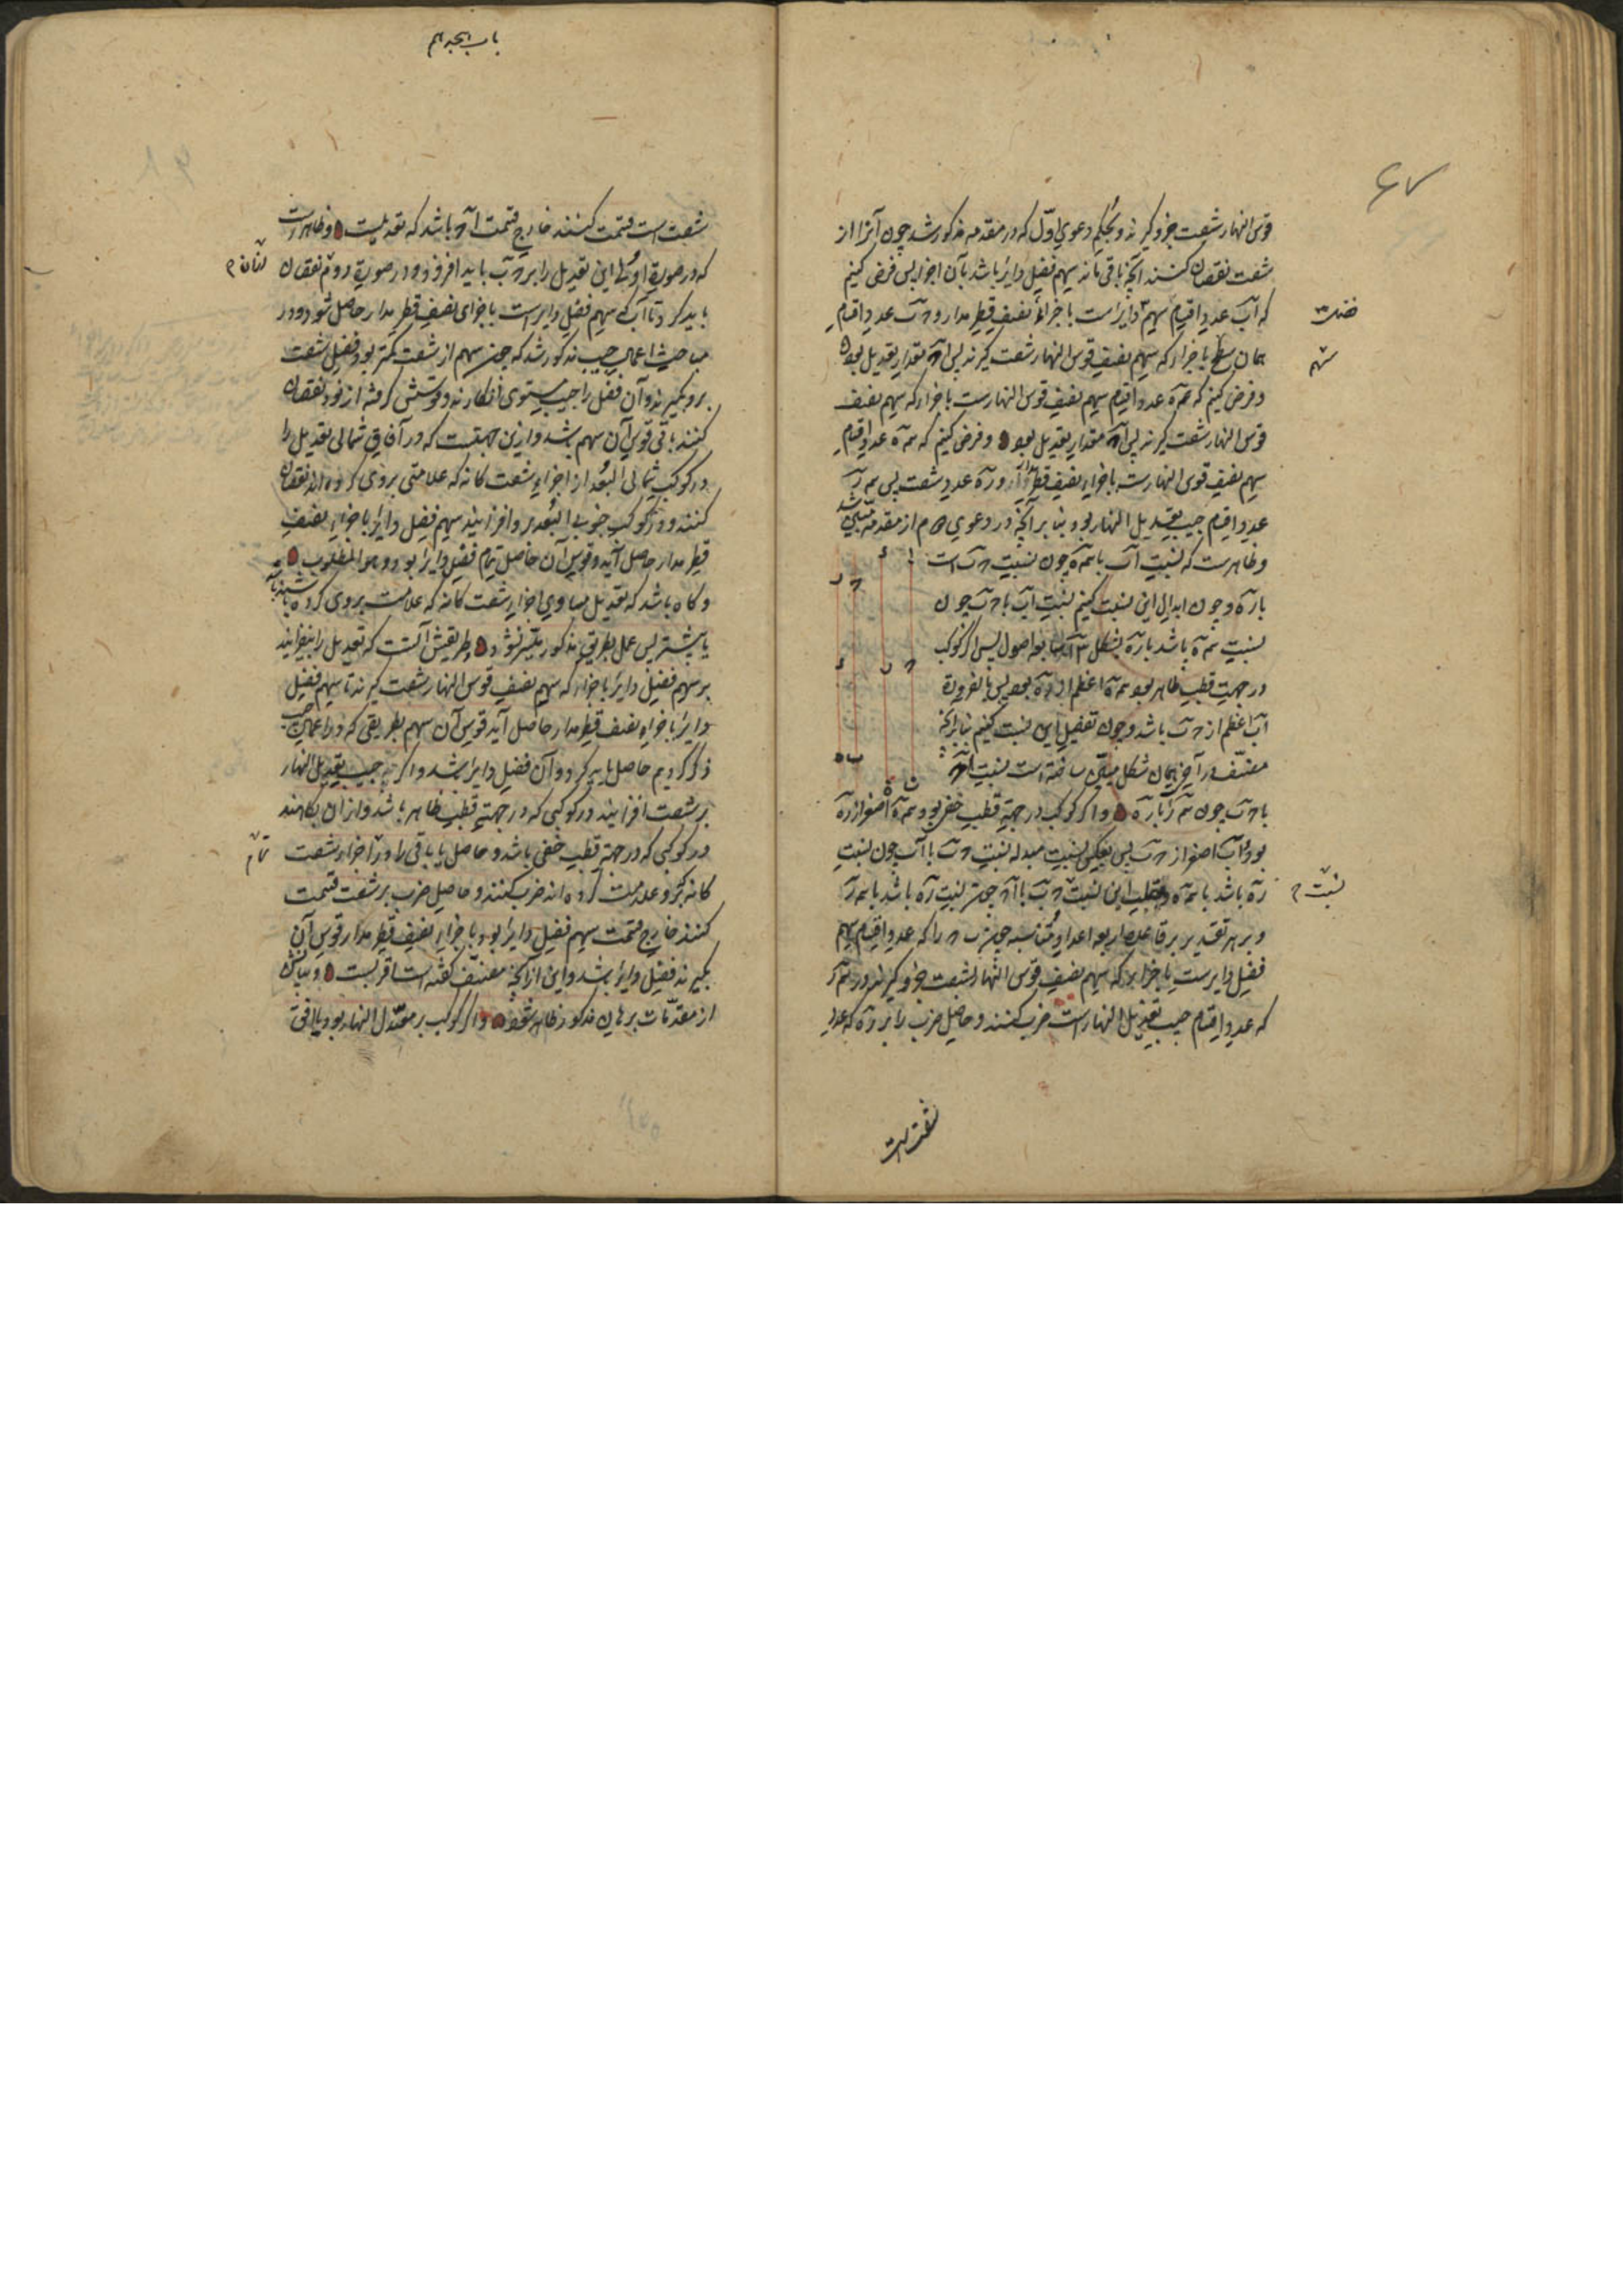 ۶۷
قوس النهار شصت جزو گیرند و بحکم دعوی اوّل که در مقدمه مذکور شد چون آنرا از
شصت نقصان کنند آنچه باقی ماند سهم فضل دایر باشد بآن اجزا پس فرض کنیم
که آب عدد اقسام سهم دایر است باجزاء نصف قطر مدار و حب عدد اقسام
همان سهم باجزاء که سهم نصف قوس النهار شصت گیرند پس اح مقدار تعدیل بود
و فرض کنیم که مه عدد اقسام سهم نصف قوس النهارست باجزاء که سهم نصف
قوس النهار شصت گیرند پس مقدار تعدیل بود و فرض کنیم که مه عدد اقسام
سهم نصف قوس النهارست باجزاء نصف قطر مدار و ره عدد شصت پس مر
عدد اقسام جیب تعدیل النهار بود بنابر آنچه در دعوی از مقدمه مبیّن شد
و ظاهرست که نسبت آب با مه چون نسبت حب است
با ره و چون ابدال این نسبت کنیم نسبت آب با حب چون
نسبت مه باشد با ره بشکل اصول پس اگر کوکب
در جهت قطب ظاهر بود مه اعظم از ره بود پس بالضرورة
آب اعظم از حب باشد و چون تفضیل این نسبت کنیم بنابر آنچه
مصنّف در آخر همان شکل مبیّن ساخته است نسبت اح
با حب چون مر با ره و اگر کوکب در جهة قطب خفی بود و مه اصغر از ره
بود و آب اصغر از حب پس بعکس نسبت مبدله نسبت حب با آب چون نسبت
ره باشد با مه و بقلب این نسبت حب با اح چون نسبت ره باشد با مر
و بر هر تقدیر بر قاعده اربعه اعداد متناسبه چون حب را که عدد اقسام سهم
فضل دایرست باجزاء که سهم نصف قوس النهار شصت جزو گیرند در مر
که عدد اقسام جیب تعدیل النهار است ضرب کنند و حاصل ضرب را بر ره که عدد
سهم
نسبت
شصت است
شصت است قسمت کنند خارج قسمت اح باشد که تعدیلست و ظاهرست
که در صورة اولی این تعدیل را بر حب باید افزود و در صورة دوم نقصان
باید کرد تا آب که سهم فضل دایرست باجزای نصف قطر مدار حاصل شود و در
مباحث اعمال جیب مذکور شد که چون سهم از شصت کمتر بود فضل شصت
برو بگیرند و آن فضل را جیب مستوی انگارند و قوسش گرفته از نود نقصان
کنند باقی قوس آن سهم باشد و ازین جهتست که در آفاق شمالی تعدیل را
در کوکب شمالی البعد از اجزاء شصت کانه که علامتی بروی کرده اند نقصان
کنند و در کوکب جنوبی البعد برو افزایند سهم فضل دایر باجزاء نصف
قطر مدار حاصل آید و قوس آن حاصل تمام فضل دایر بود و هو المطلوب
و گاه باشد که تعدیل مساوی اجزاء شصت کانه که علامت بروی کرده باشند
یا بیشتر پس عمل بطریق مذکور میسّر نشود و طریقش آنست که تعدیل را بیفزایند
بر سهم فضل دایر باجزاء که سهم نصف قوس النهار شصت گیرند تا سهم فضل
دایر باجزاء نصف قطر مدار حاصل آید قوس آن سهم بطریقی که در اعمال جیب
ذکر کردیم حاصل باید کرد و آن فضل دایر باشد و اگر جیب تعدیل النهار
بر شصت افزایند در کوکبی که در جهة قطب ظاهر باشد و از آن بکاهند
در کوکبی که در جهة قطب خفی باشد و حاصل یا باقی را در اجزاء شصت
کانه که برو علامت کرده اند ضرب کنند و حاصل ضرب بر شصت قسمت
کنند خارج قسمت سهم فضل دایر بود باجزاء نصف قطر مدار قوس آن
بگیرند فضل دایر باشد و این از آنچه مصنّف گفته است اقربست و بیانش
از مقدّمات برهان مذکور ظاهر شود و اگر کوکب بر معدّل النهار بود یا افق